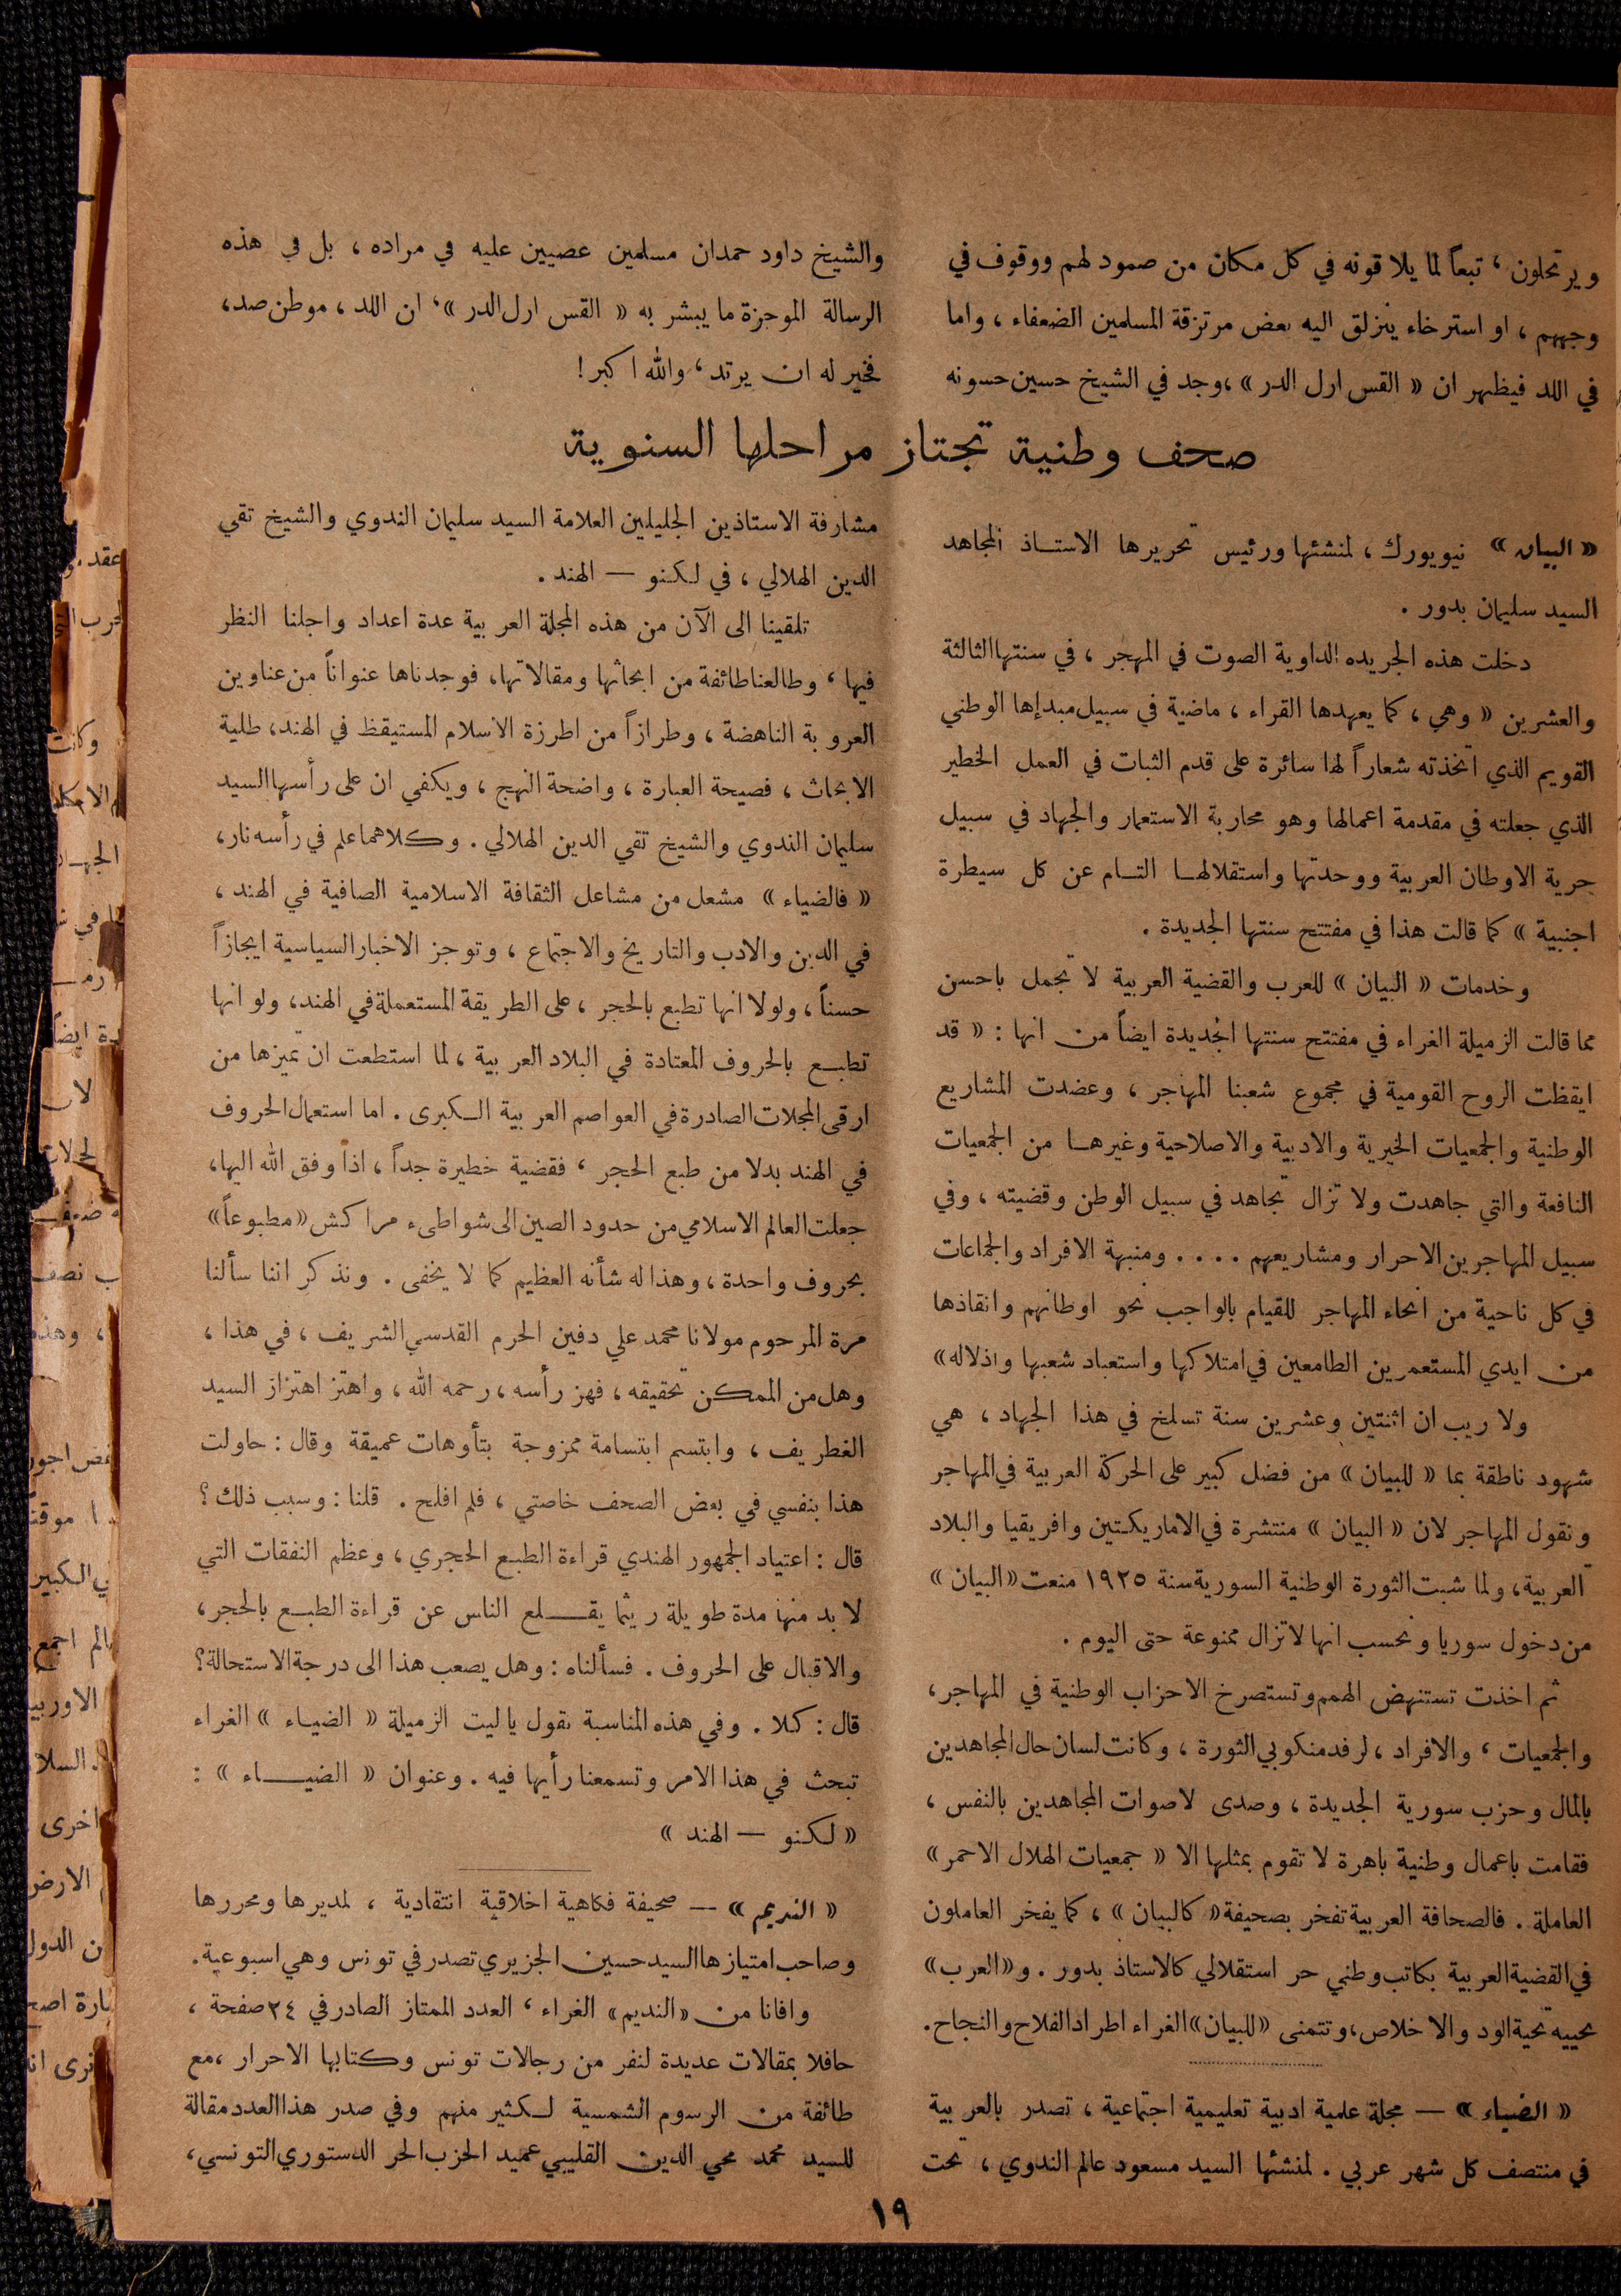 ويرتحلون، تبعاً لما يلاقونه في كل مكان من صمود لهم ووقوف في
وجههم، او استرخاء ينزلق اليه بعض مرتزقة المسلمين الضعفاء، واما
في اللد فيظهر ان « القس ارل الدر »، وجد في الشيخ حسين حسونه
والشيخ داود حمدان مسلمين عصيين عليه في مراده، بل في هذه
الرسالة الموجزة ما يبشر به « القس ارل الدر »، ان اللد، موطن صد،
فخير له ان يرتد، والله اكبر!
صحف وطنية تجتاز مراحلها السنوية
« البيان » نيويورك، لمنشئها ورئيس تحريرها الاستاذ المجاهد
السيد سليمان بدور.
دخلت هذه الجريده الداوية الصوت في المهجر، في سنتها الثالثة
والعشرين « وهي، كما يعهدها القراء، ماضية في سبيل مبدإها الوطني
القويم الذي اتخذته شعاراً لها سائرة على قدم الثبات في العمل الخطير
الذي جعلته في مقدمة اعمالها وهو محاربة الاستعمار والجهاد في سبيل
حرية الاوطان العربية ووحدتها واستقلالها التام عن كل سيطرة
اجنبية » كما قالت هذا في مفتتح سنتها الجديدة.
وخدمات « البيان » للعرب والقضية العربية لا تجمل باحسن
مما قالت الزميلة الغراء في مفتتح سنتها الجديدة ايضاً من انها: « قد
ايقظت الروح القومية في مجموع شعبنا المهاجر، وعضدت المشاريع
الوطنية والجمعيات الخيرية والادبية والاصلاحية وغيرها من الجمعيات
النافعة والتي جاهدت ولا تزال تجاهد في سبيل الوطن وقضيته، وفي
سبيل المهاجرين الاحرار ومشاريعهم .... ومنبهة الافراد والجماعات
في كل ناحية من انحاء المهاجر للقيام بالواجب نحو اوطانهم وانقاذها
من ايدي المستعمرين الطامعين في امتلاكها واستعباد شعبها واذلاله »
ولا ريب ان اثنتين وعشرين سنة تسلخ في هذا الجهاد، هي
شهود ناطقة بما « للبيان » من فضل كبير على الحركة العربية في المهاجر
ونقول المهاجر لان « البيان » منتشرة في الاماريكتين وافريقيا والبلاد
العربية، ولما شبت الثورة الوطنية السورية سنة ١٩٢٥ منعت « البيان »
من دخول سوريا ونحسب انها لا تزال ممنوعة حتى اليوم.
ثم اخذت تستنهض الهمم وتستصرخ الاحزاب الوطنية في المهاجر،
والجمعيات، والافراد، لرفد منكوبي الثورة، وكانت لسان حال المجاهدين
بالمال وحزب سورية الجديدة، وصدى لاصوات المجاهدين بالنفس،
فقامت باعمال وطنية باهرة لا تقوم بمثلها الا « جمعيات الهلال الاحمر »
العاملة. فالصحافة العربية تفخر بصحيفة « كالبيان »، كما يفخر العاملون
في القضية العربية بكاتب وطني حر استقلالي كالاستاذ بدور. و« العرب »
تحييه تحية الود والاخلاص، وتتمنى « للبيان » الغراء اطراد الفلاح والنجاح.
« الضياء » — مجلة علمية ادبية تعليمية اجتماعية، تصدر بالعربية
في منتصف كل شهر عربي. لمنشئها السيد مسعود عالم الندوي، تحت
مشارفة الاستاذين الجليلين العلامة السيد سليمان الندوي والشيخ تقي
الدين الهلالي، في لكنو — الهند.
تلقينا الى الآن من هذه المجلة العربية عدة اعداد واجلنا النظر
فيها، وطالعنا طائفة من ابحاثها ومقالاتها، فوجدناها عنواناً من عناوين
العروبة الناهضة، وطرازاً من اطرزة الاسلام المستيقظ في الهند، طلية
الابحاث، فصيحة العبارة، واضحة النهج، ويكفي ان على رأسها السيد
سليمان الندوي والشيخ تقي الدين الهلالي. وكلاهما علم في رأسه نار،
« فالضياء » مشعل من مشاعل الثقافة الاسلامية الصافية في الهند،
في الدين والادب والتاريخ والاجتماع، وتوجز الاخبار السياسية ايجازاً
حسناً، ولولا انها تطبع بالحجر، على الطريقة المستعملة في الهند، ولو انها
تطبع بالحروف المعتادة في البلاد العربية، لما استطعت ان تميزها من
ارقى المجلات الصادرة في العواصم العربية الكبرى. اما استعمال الحروف
في الهند بدلا من طبع الحجر، فقضية خطيرة جداً، اذا وفق الله اليها،
جعلت العالم الاسلامي من حدود الصين الى شواطىء مراكش « مطبوعاً »
بحروف واحدة، وهذا له شأنه العظيم كما لا يخفى. ونذكر اننا سألنا
مرة المرحوم مولانا محمد علي دفين الحرم القدسي الشريف، في هذا،
وهل من الممكن تحقيقه، فهز رأسه، رحمه الله، واهتز اهتزاز السيد
الغطريف، وابتسم ابتسامة ممزوجة بتأوهات عميقة وقال: حاولت
هذا بنفسي في بعض الصحف خاصتي، فلم افلح. قلنا: وسبب ذلك؟
قال: اعتياد الجمهور الهندي قراءة الطبع الحجري، وعظم النفقات التي
لا بد منها مدة طويلة ريثما يقلع الناس عن قراءة الطبع بالحجر،
والاقبال على الحروف. فسألناه: وهل يصعب هذا الى درجة الاستحالة؟
قال: كلا. وفي هذه المناسبة نقول يا ليت الزميلة « الضياء » الغراء
تبحث في هذا الامر وتسمعنا رأيها فيه. وعنوان « الضياء »:
« لكنو — الهند »
« النديم » — صحيفة فكاهية اخلاقية انتقادية، لمديرها ومحررها
وصاحب امتيازها السيد حسين الجزيري تصدر في تونس وهي اسبوعية.
وافانا من « النديم » الغراء، العدد الممتاز الصادر في ٢٤ صفحة،
حافلا بمقالات عديدة لنفر من رجالات تونس وكتابها الاحرار، مع
طائفة من الرسوم الشمسية لكثير منهم وفي صدر هذا العدد مقالة
للسيد محمد محي الدين القليبي عميد الحزب الحر الدستوري التونسي،
١٩